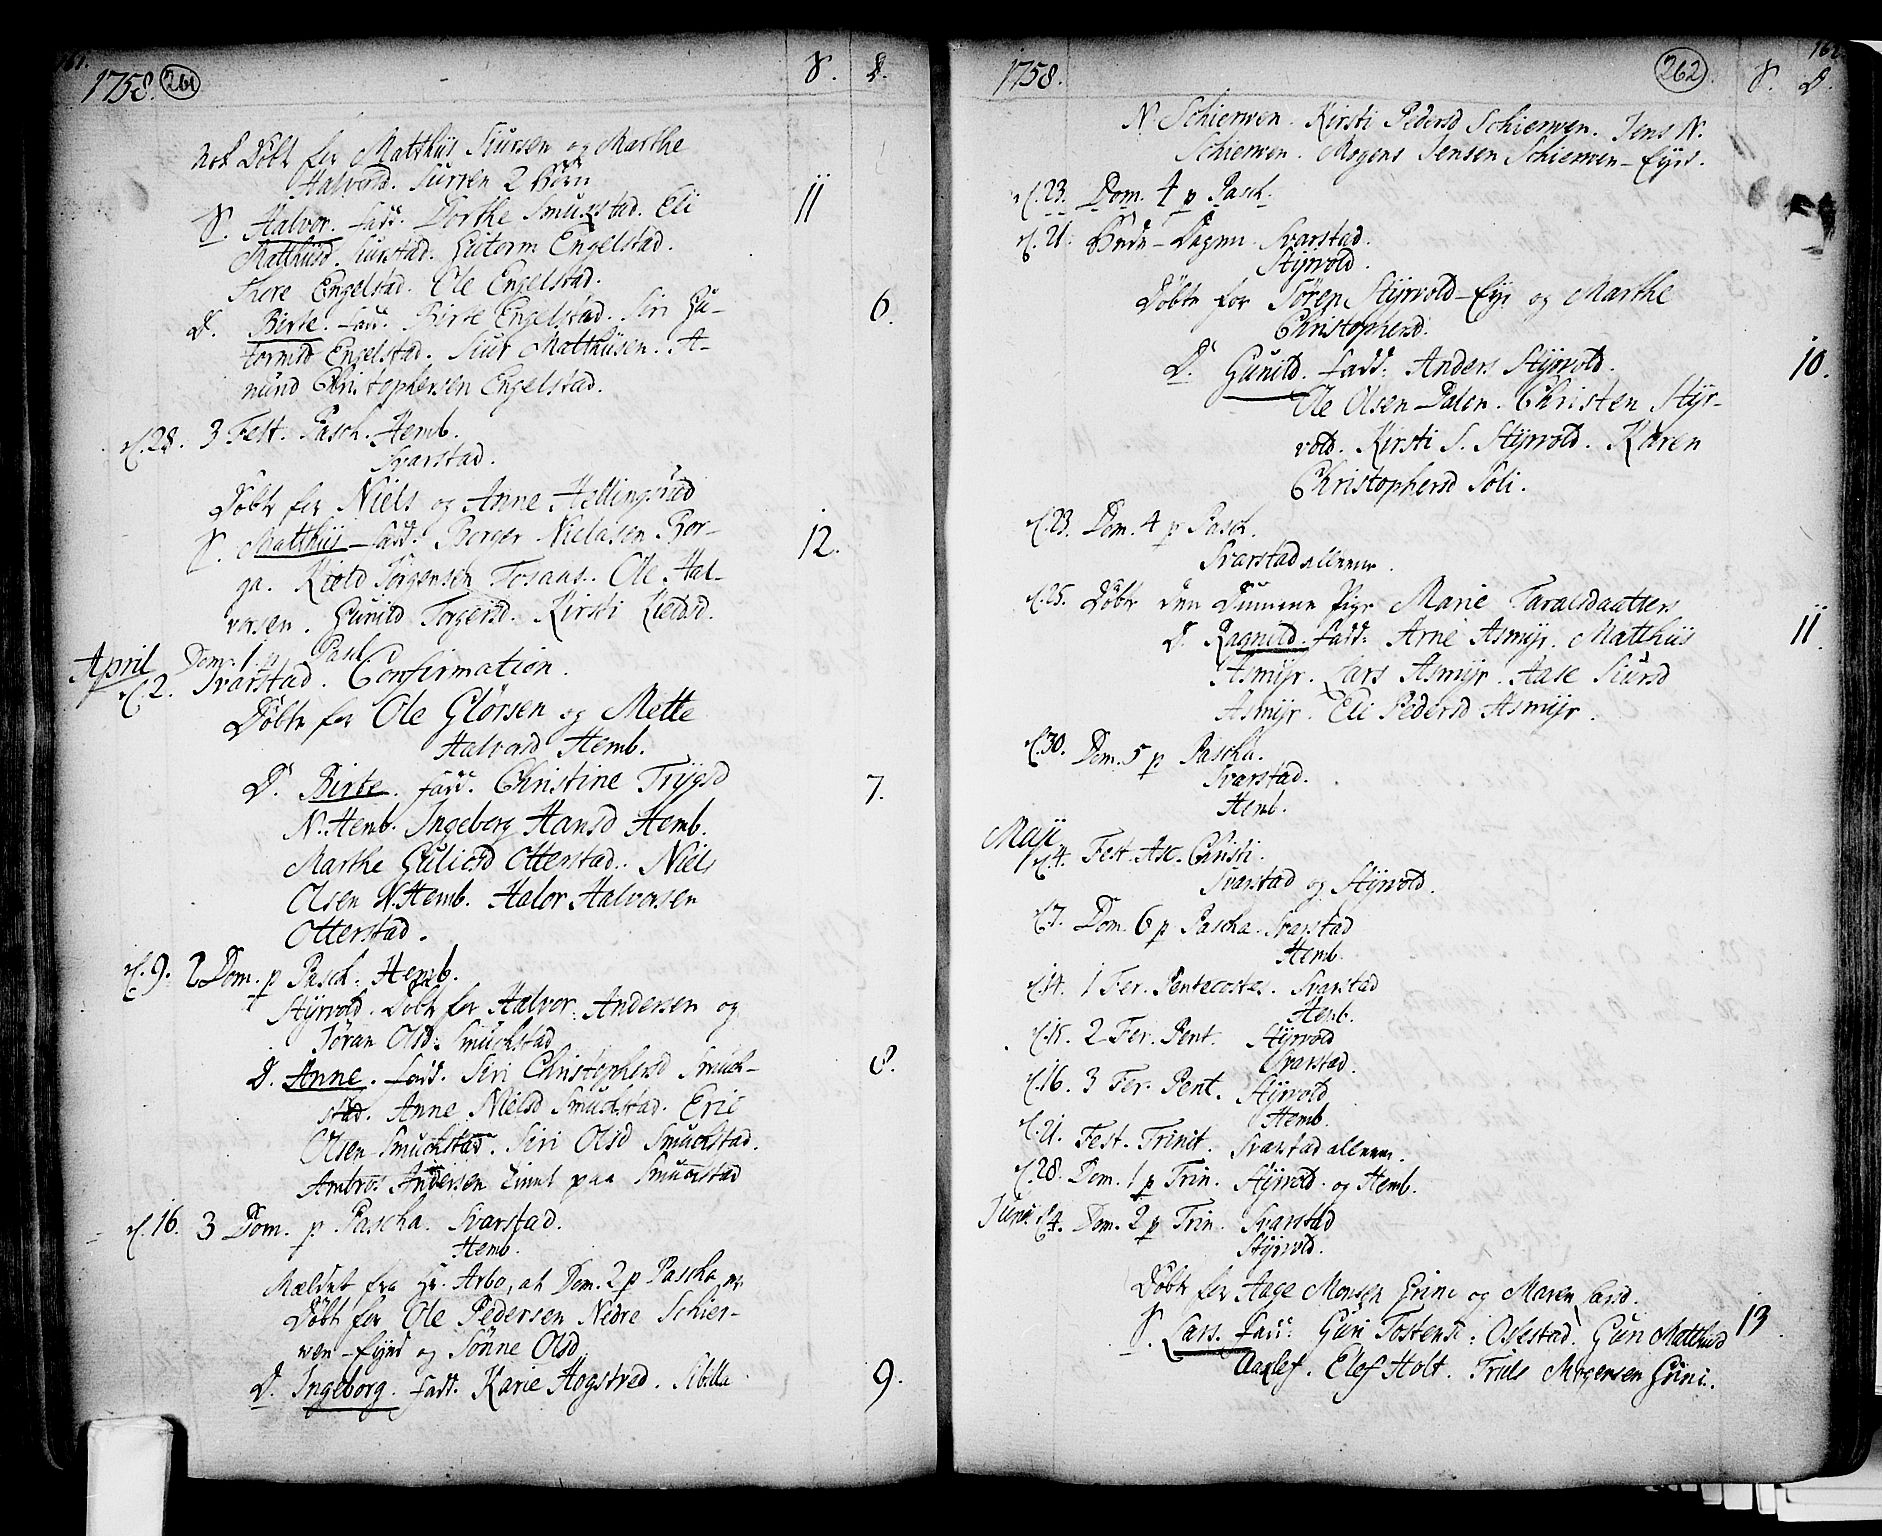 161.
1758. 261 S. D.
nok Døbt for Matthiis Siursen og Marthe
Halvord. Surren 2 Børn
S. Halvor. fadd. Dorthe Smukstad. Eli 11
Matthiisd. Surstad. Gutorm Engelstad.
Thore Engelstad. Ole Engelstad.
D. Birte. fadd. Birte Engelstad. Siri Gu- 6.
tormsd Engelstad. Siur Matthiisen. A-
mund Christophersen Engelstad.
d. 28. 3 Fest. Pasch. Hemb.
Svarstad.
Døbt for Niels og Anne Hellingsrud
S. Matthiis fadd. Borger Nielssen Bor- 12.
ga. Kield Jørgensen Fosaas. Ole Hal-
vorsen. Gunild Torgersd. Kirsti Kieldsd.
April Dom. 1 p Pasc
d. 2. Svarstad. Confirmation.
Døbt for Ole Glørsen og Mette
Halvorsd Hemb.
D. Birte. fadd. Christine Trygsd 7.
N. Hemb. Ingeborg Hansd Hemb.
Marthe Guliksd Otterstad. Niels
Olsen N. Hemb. Halvor Halvorsen
Otterstad.
d. 9. 2 Dom. p Pasch. Hemb.
Styrvold. Døbt for Halvor Andersen og
Jøran Olsd. Smuckstad
D. Anne. fadd. Siri Christophersd Smuck- 8.
stad. Anne Nielsd Smuckstad. Eric
Olsen Smuckstad. Siri Olsd Smuckstad.
Ambros Andersen tient paa Smuckstad
d. 16. 3 Dom. p Pascha. Svarstad.
Hemb.
Meldet fra Hr. Arbo, at Dom. 2 p Pascha, er
Døbt for Ole Pedersen Nedre Schier-
ven-Eyed og Sønne Olsd
D. Ingeborg. fadd. Karie Hogstved. Sibille 9.
162
1758. 262 S. D.
N. Schierven. Kirsti Pedersd Schierven. Jens N.
Schierven. Mogens Jensen Schierven-Eyed.
d. 23. Dom. 4 p Pasch.
d. 21. Bede-Dagen Svarstad.
Styrvold.
Døbt for Søren Styrvold-Eye og Marthe
Christophersd.
D. Gunild. fadd. Anders Styrvold. 10.
Ole Olsen Dalen. Christen Styr-
vold. Kirsti S. Styrvold. Karen
Christophersd Soli.
d. 23. Dom. 4 p Pasch.
Svarstad allene.
d. 25. Døbt den Dumme Pige Marie Taralsdaatters
D. Ragnild. fadd. Arne Asmyr. Matthiis 11.
Asmyr. Lars Asmyr. Aase Siursd
Asmyr. Eli Pedersd Asmyr.
d. 30. Dom. 5 p Pascha.
Svarstad.
Hemb.
Maji
d. 4. Fest. Asc. Christi.
Svarstad og Styrvold.
d. 7. Dom. 6 p Pascha. Svarstad
Hemb.
d. 14. 1 Fer. Pentecostes. Svarstad
Hemb.
d. 15. 2 Fer. Pent. Styrvold
Svarstad.
d. 16. 3 Fer. Pent. Styrvold
Hemb.
d. 21. Fest. Trinit. Svarstad allene.
d. 28. Dom. 1 p Trin. Styrvold og Hemb.
Junii d. 4. Dom. 2 p Trin. Svarstad
Styrvold.
Døbt for Aage Monsen Grini og Maren Larsd.
S. Lars. fadd. Guri Tostensd. Oslestad. Guri Matthiisd 13.
Aarlef. Elef Holt. Truls Mogensen Grini.